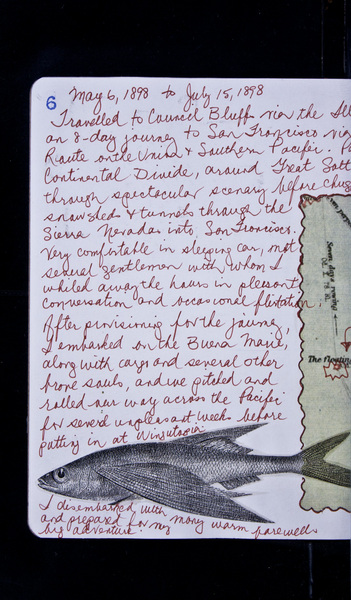 6
May 6, 1898 to July 15, 1898
Travelled to Council Bluffs via the Ill
on 8-day journey to San Francisco via
Route on the Union & Southern Pacific. Pa
Continental Divide, around Great Salt
through spectacular scenery before chug
snowsheds & tunnels through the
Sierra Nevadas into San Francisco.
Very comfortable in sleeping car, met
several gentlemen with whom I
whiled away the hours in pleasant
conversation and occasional flirtation.
After provisioning for the journey,
I embarked on the Buena Marie,
along with cargo and several other
brave souls, and we pitched and
rolled our way across the Pacific
for several unpleasant weeks before
putting in at
I disembarked with
and prepared for my many warm farewells
big adventure!
Seven days' journey
The floating